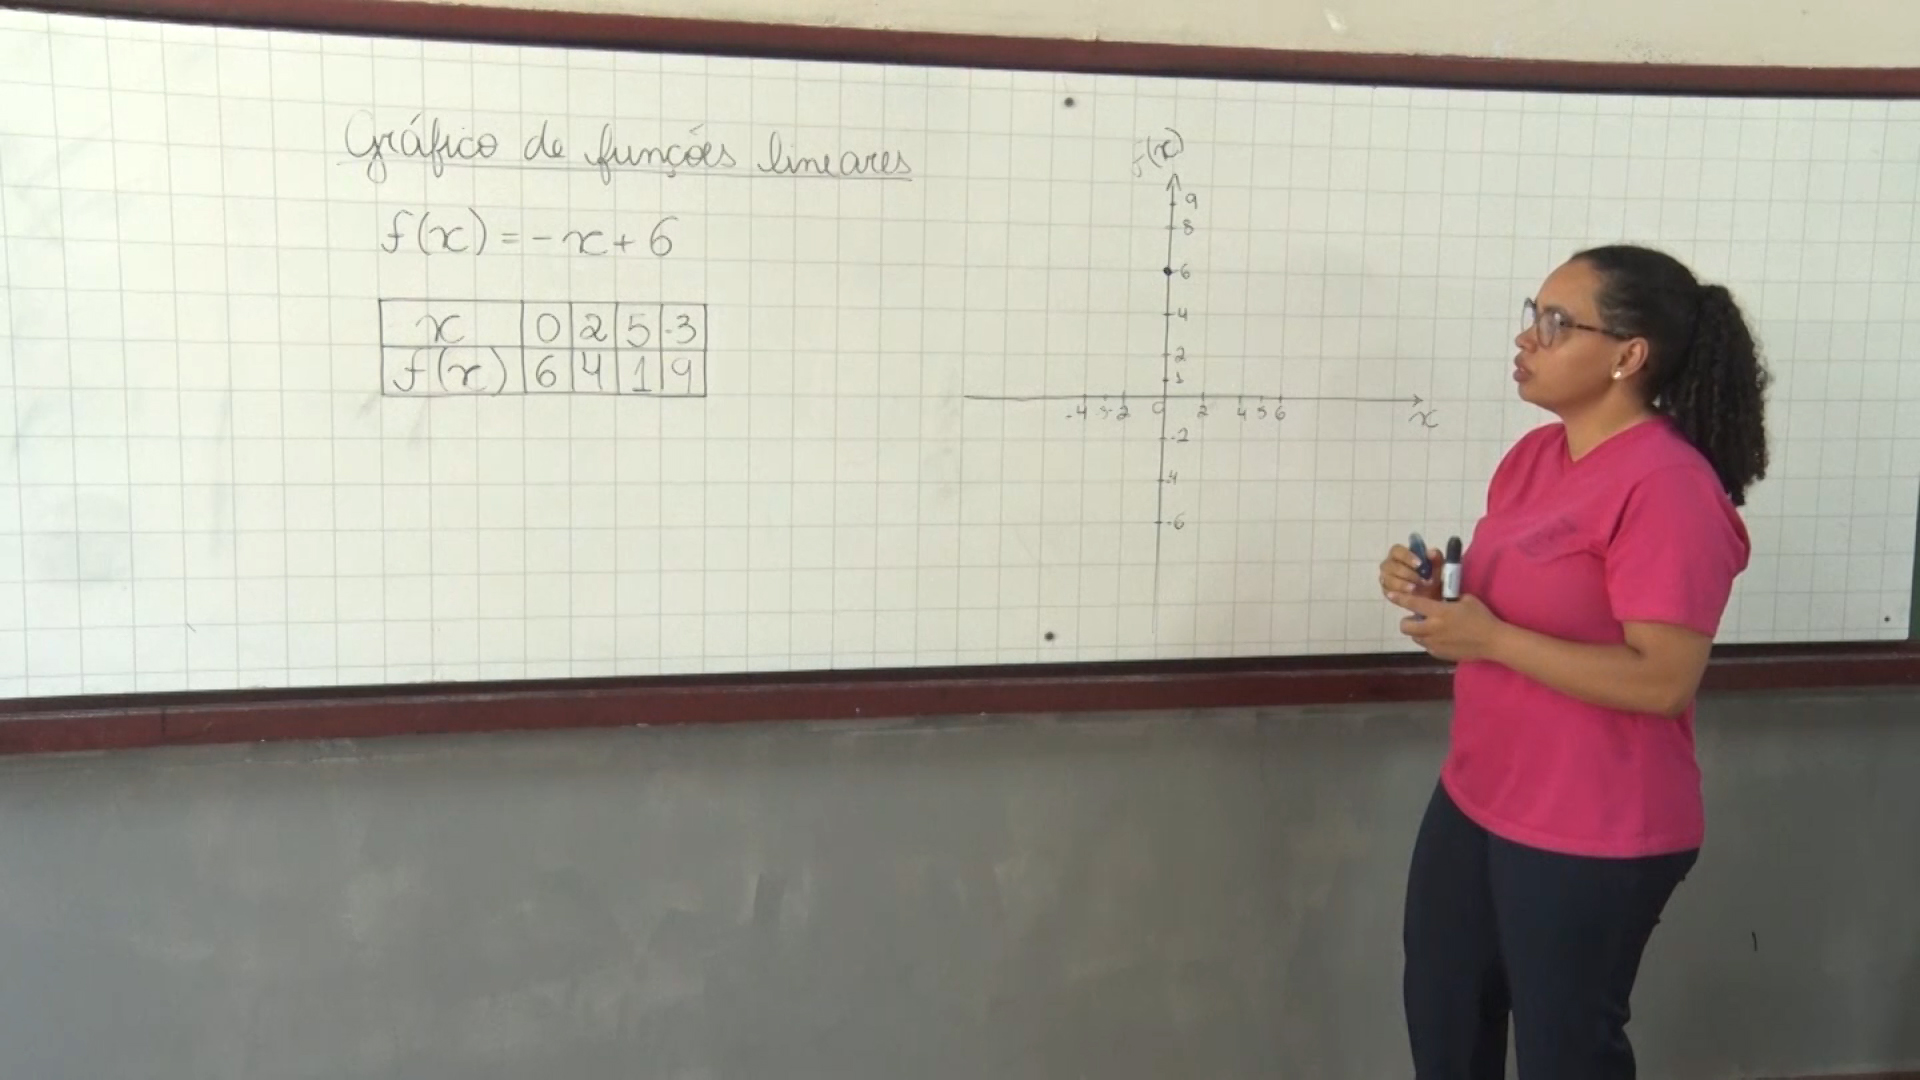 Gráfico de funções lineares
f(x) = -x + 6
x 0 2 5 -3
f(x) 6 4 1 9
f(x)
9
8
6
4
2
1
-4 -3 -2 0 2 4 5 6
x
-2
-4
-6